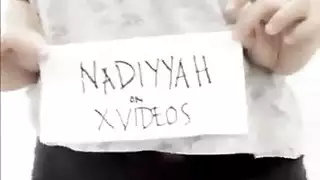 NADIYYAH
on
XVIDEOS